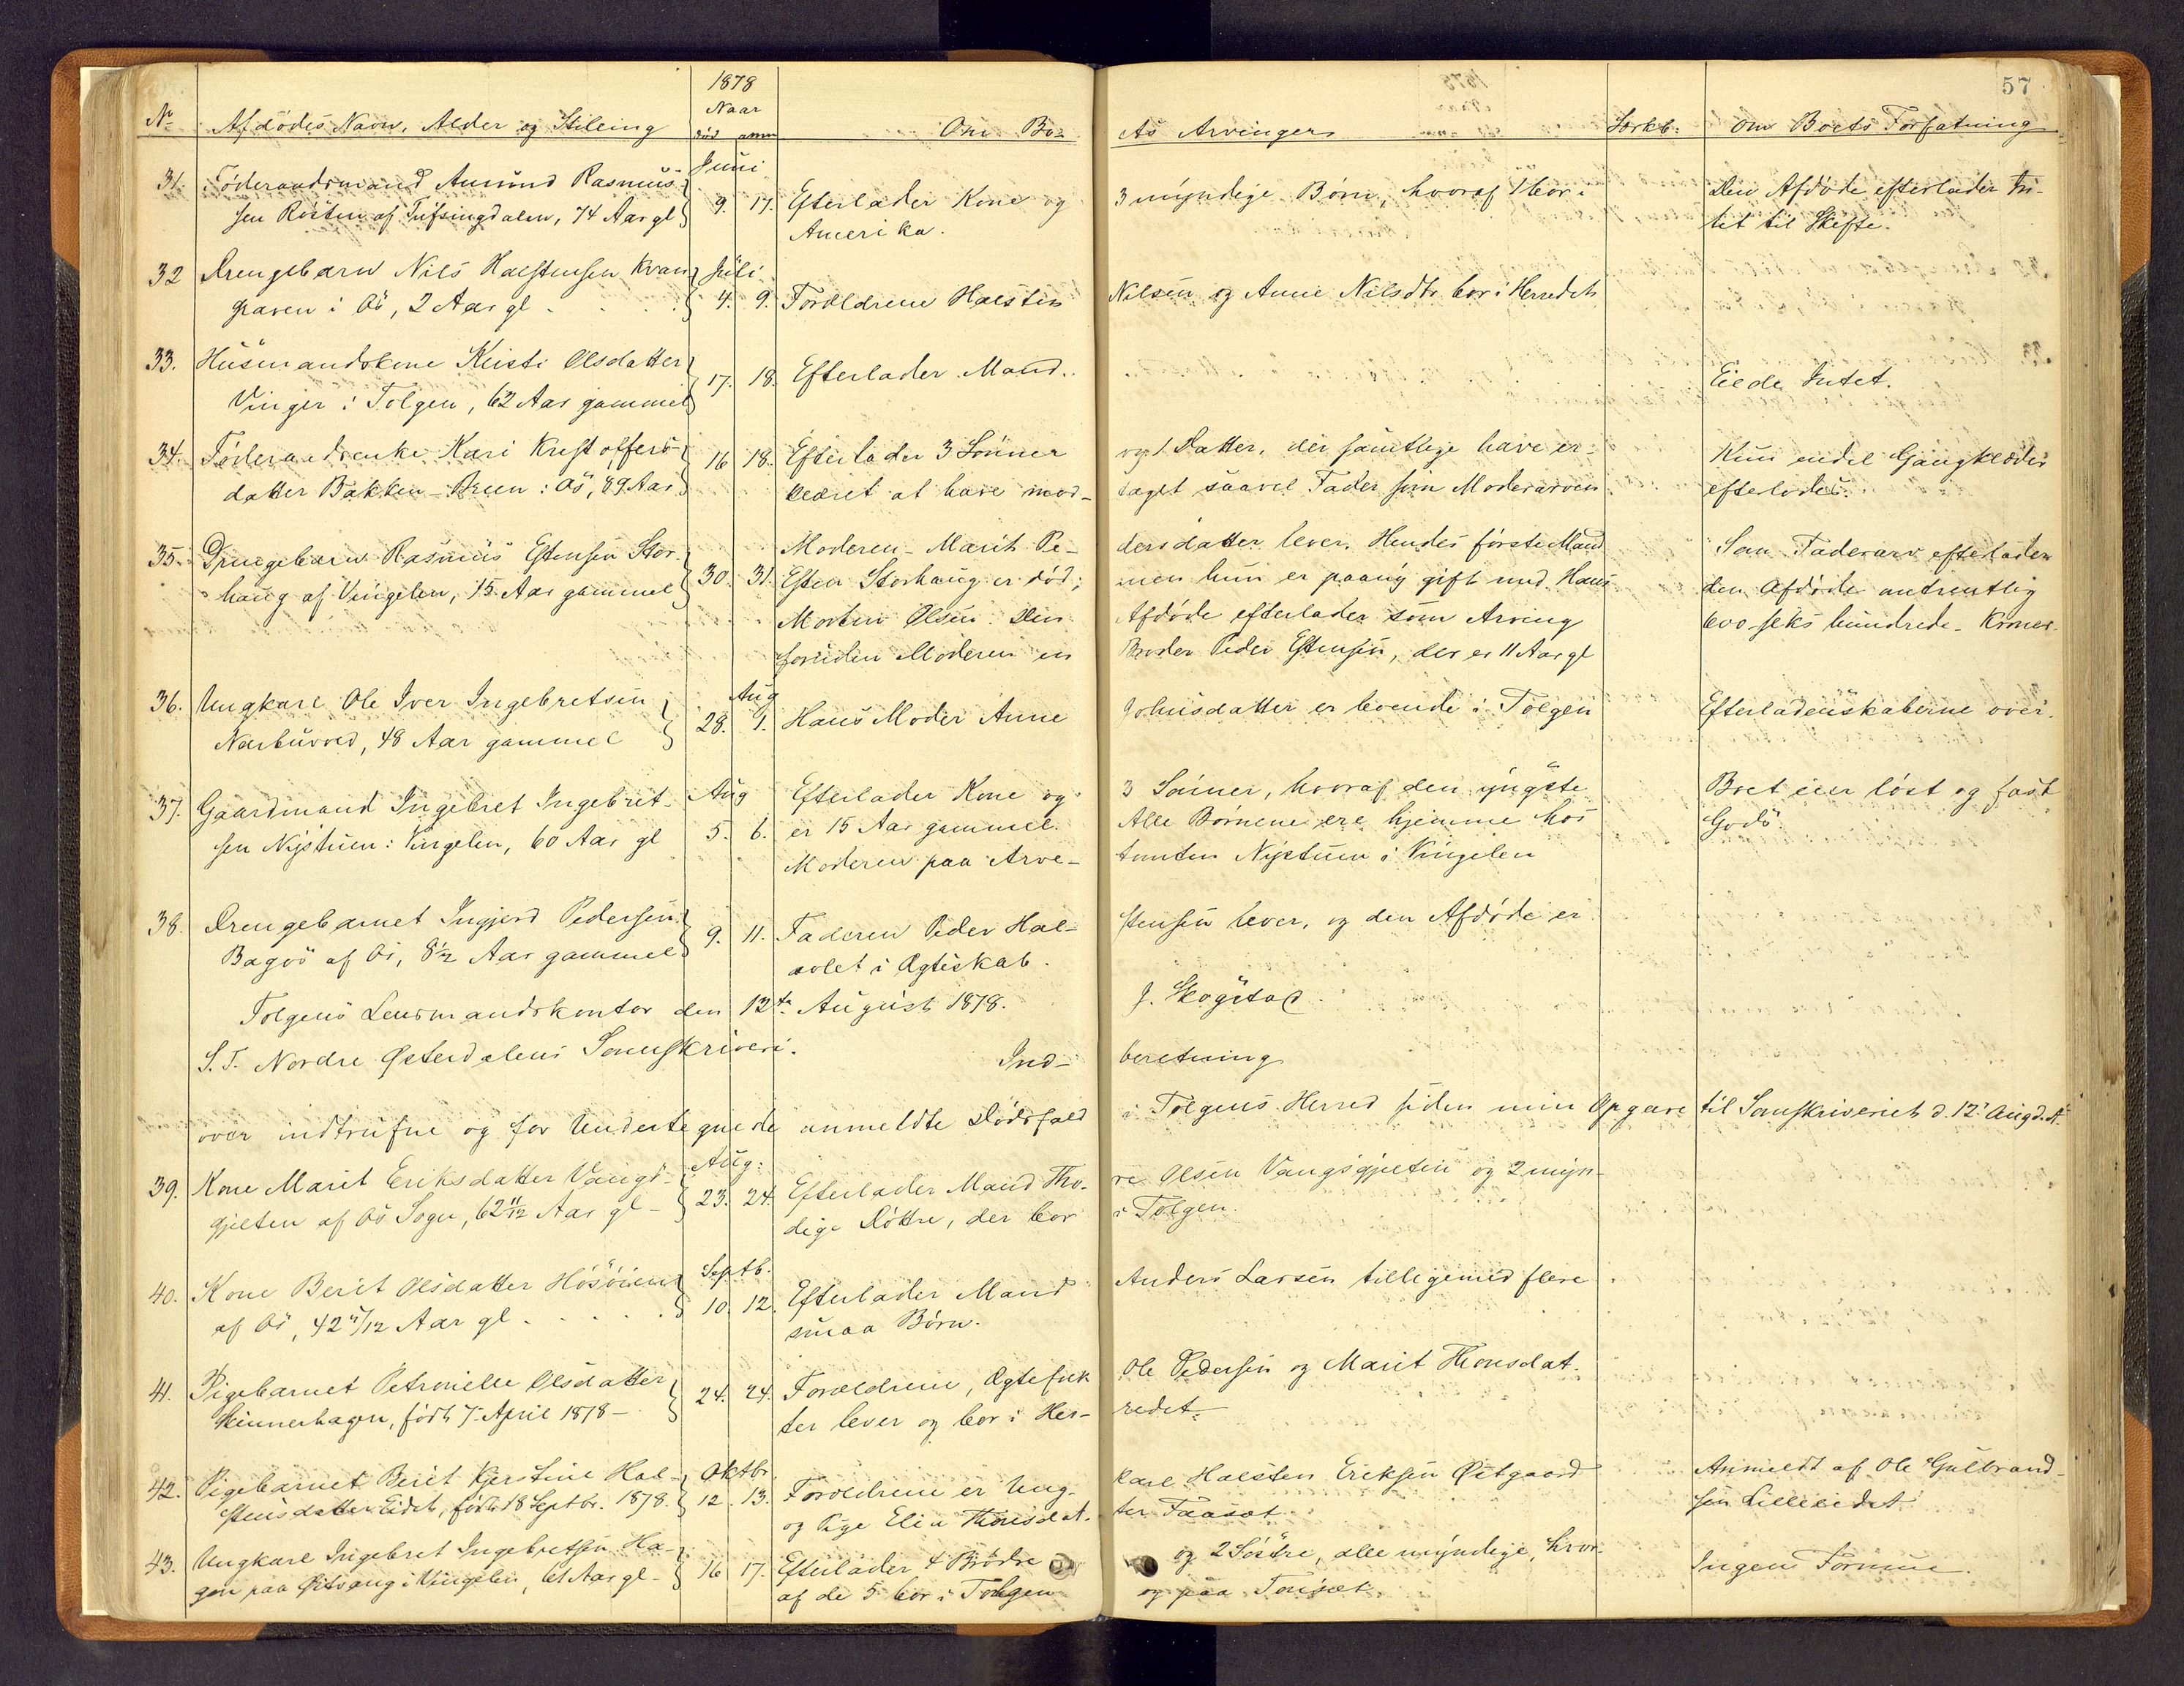 1878
57
Naar
No Afdödes Navn, Alder og Stilling död anm Om Bo- ets Arvinger Særkb: Om Boets Forfatning
Juni
31. Föderaadsmand Amund Rasmus- 3 myndige Börn, hvoraf 1 bor i Den Afdöde efterlader In-
sen Rösten af Tufsingdalen, 74 Aar gl 9. 17. Efterlader Kone og
Amerika. tet til Skifte.
32 Drengebarn Nils Halstensen Kvan Juli
graven i Ös, 2 Aar gl. 4. 9. Forældrene Halsten Nilsen og Anne Nilsdtr bor i Herredet
33. Husmandskone Kirsti Olsdatter
Vinger i Tolgen, 62 Aar gammel 17. 18. Efterlader Mand. Eiede Intet.
34. Föderaadsenke Kari Kristoffers- 16 18. Efterlader 3 Sönner og 1 Datter, der samtlige have er- Kun endel Gangklæder
datter Bakken-Aaen i Ös, 89 Aar klæret at have mod- taget saavel Fader som Moderarven efterlodes.
35. Drengebarn Rasmus Estensen Stor- Moderen - Marit Pe- dersdatter lever. Hendes förste Mand Som Faderarv efterlader
haug af Vingelen, 15 Aar gammel 30. 31. Esten Storhaug er död; men hun er paany gift med Hans den Afdöde omtrentlig
Morten Olsen. Den Afdöde efterlader som Arving 600 seks hundrede Kroner.
foruden Moderen en Broder Peder Estensen, der er 11 Aar gl
Aug
36. Ungkarl Ole Iver Ingebretsen
Narbuvoed, 48 Aar gammel 28. 1. Hans Moder Anne Johnsdatter er boende i Tolgen Efterladenskaberne over.
37. Gaardmand Ingebret Ingebret- Aug Efterlader Kone og 3 Sönner, hvoraf den yngste Boet eier löst og fast
sen Nystuen i Vingelen, 60 Aar gl 5. 6. er 15 Aar gammel. Alle Börnene ere hjemme hos Gods
Moderen paa Arve- tomten Nystuen i Vingelen
38. Drengebarnet Ingjerd Pedersen
Bagös af Ös, 8 1/2 Aar gammel 9. 11. Faderen Peder Hal- stensen lever, og den Afdöde er
avlet i Ægteskab.
Tolgens Lensmandskontor den 12te August 1878. J. Skogstad.
S. T. Nordre Østerdalens Sorenskriveri.
Ind- beretning
over indtrufne og for Undertegnede anmeldte Dödsfald i Tolgens Herred siden min Opgave til Sorenskriveriet d. 12' Aug d. A.
Aug:
39. Kone Marit Eriksdatter Vangs-
gjelten af Ös Sogn, 62 11/12 Aar gl - 23. 24. Efterlader Mand Tho- re Olsen Vangsgjelten og 2 myn-
dige Döttre, der bor i Tolgen.
Septb.
40. Kone Berit Olsdatter Hösöien
af Ös, 42 4/12 Aar gl. 10. 12. Efterlader Mand Anders Larsen tilligemed flere
smaa Börn.
41. Pigebarnet Petronelle Olsdatter 24. 24. Forældrene, Ægtefolk Ole Pedersen og Marit Thorsdat-
Skinnerhagen, födt 7. April 1878 - ter lever og bor i Her- redet.
Oktbr.
42. Pigebarnet Berit Kjerstine Hal-
stensdatter Eidet, födt 18 Septbr. 1878. 12. 13. Forældrene er Ung- karl Halsten Eriksen Østgaard Anmeldt af Ole Gulbrand-
og Pige Elin Thoresdat- ter Faaset. sen Lilleeidet
43. Ungkarl Ingebret Ingebretsen Ha-
gen paa Östvang i Vingelen, 61 Aar gl - 16 17. Efterlader 4 Brödre og 2 Söstre, alle myndige, hvor- Ingen Formue.
af de 5 bor i Tolgen og paa Tönset.